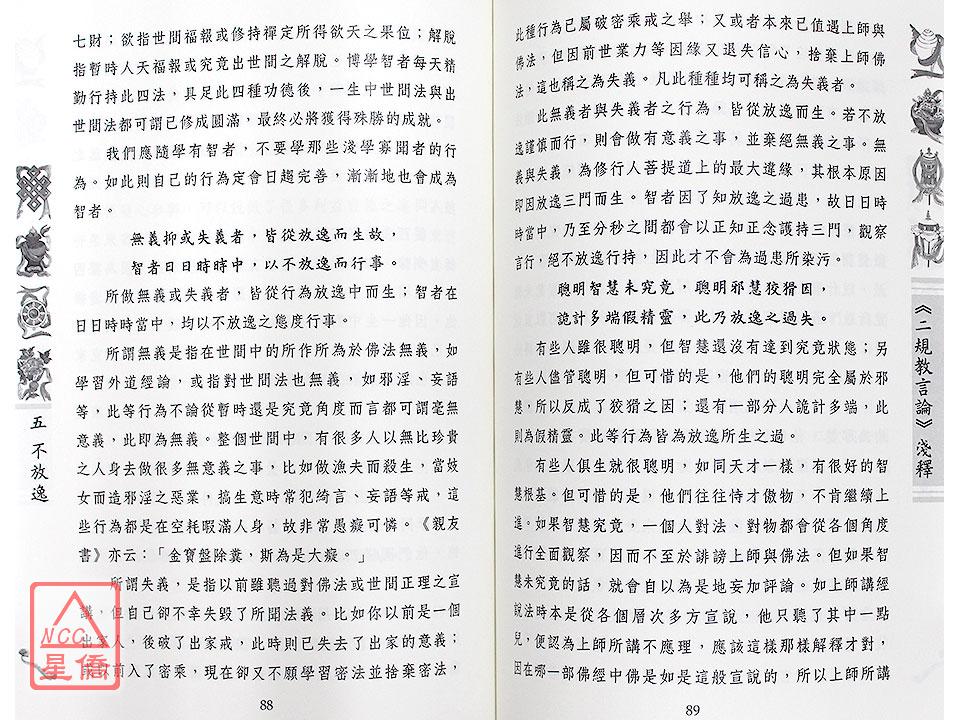 七財；欲指世間福報或修持禪定所得欲天之果位；解脫
指暫時人天福報或究竟出世間之解脫。博學智者每天精
勤行持此四法，具足此四種功德後，一生中世間法與出
世間法都可謂已修成圓滿，最終必將獲得殊勝的成就。
我們應隨學有智者，不要學那些淺學寡聞者的行
為。如此則自己的行為定會日趨完善，漸漸地也會成為
智者。
無義抑或失義者，皆從放逸而生故，
智者日日時時中，以不放逸而行事。
所做無義或失義者，皆從行為放逸中而生；智者在
日日時時當中，均以不放逸之態度行事。
所謂無義是指在世間中的所作所為於佛法無義，如
學習外道經論，或指對世間法也無義，如邪淫、妄語
等，此等行為不論從暫時還是究竟角度而言都可謂毫無
意義，此即為無義。整個世間中，有很多人以無比珍貴
之人身去做很多無意義之事，比如做漁夫而殺生，當妓
女而造邪淫之惡業，搞生意時常犯綺言、妄語等戒，這
些行為都是在空耗暇滿人身，故非常愚癡可憐。《親友
書》亦云：「金寶盤除糞，斯為是大癡。」
所謂失義，是指以前雖聽過對佛法或世間正理之宣
講，但自己卻不幸失毀了所聞法義。比如你以前是一個
出家人，後破了出家戒，此時則已失去了出家的意義；
或以前入了密乘，現在卻又不願學習密法並捨棄密法，
五 不放逸
88
NCC
星僑
此種行為已屬破密乘戒之舉；又或者本來已值遇上師與
佛法，但因前世業力等因緣又退失信心，捨棄上師佛
法，這也稱之為失義。凡此種種均可稱之為失義者。
此無義者與失義者之行為，皆從放逸而生。若不放
逸謹慎而行，則會做有意義之事，並棄絕無義之事。無
義與失義，為修行人菩提道上的最大違緣，其根本原因
即因放逸三門而生。智者因了知放逸之過患，故日日時
時當中，乃至分秒之間都會以正知正念護持三門，觀察
言行，絕不放逸行持，因此才不會為過患所染污。
聰明智慧未究竟，聰明邪慧狡猾因，
詭計多端假精靈，此乃放逸之過失。
有些人雖很聰明，但智慧還沒有達到究竟狀態；另
有些人儘管聰明，但可惜的是，他們的聰明完全屬於邪
慧，所以反成了狡猾之因；還有一部分人詭計多端，此
則為假精靈。此等行為皆為放逸所生之過。
有些人俱生就很聰明，如同天才一樣，有很好的智
慧根基。但可惜的是，他們往往恃才傲物，不肯繼續上
進。如果智慧究竟，一個人對法、對物都會從各個角度
進行全面觀察，因而不至於誹謗上師與佛法。但如果智
慧未究竟的話，就會自以為是地妄加評論。如上師講經
說法時本是從各個層次多方宣說，他只聽了其中一點
兒，便認為上師所講不應理，應該這樣那樣解釋才對，
因在哪一部佛經中佛是如是這般宣說的，所以上師所講
《二規教言論》淺釋
89